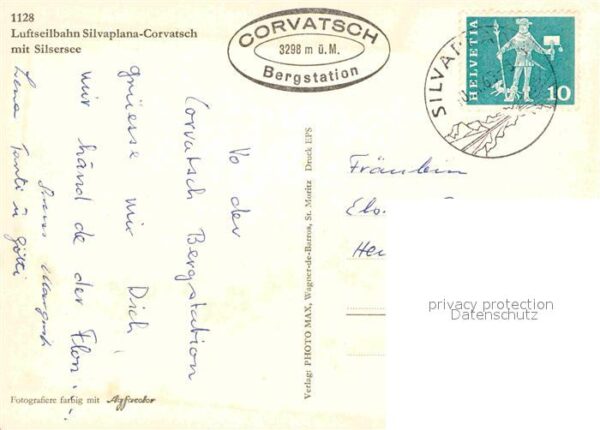 1128
Luftseilbahn Silvaplana-Corvatsch
mit Silsersee
CORVATSCH
3298 m ü. M.
Bergstation
SILVAP
HELVETIA
10
Vo der
Corvatsch Bergstation
grüesse mir Dich,
mir händ de der Flon
Lena Tanti u Götti
Fräulein
Verlag: PHOTO MAX, Wagner-de-Barros, St. Moritz Druck EPS
Fotografiere farbig mit Agfacolor
privacy protection
Datenschutz